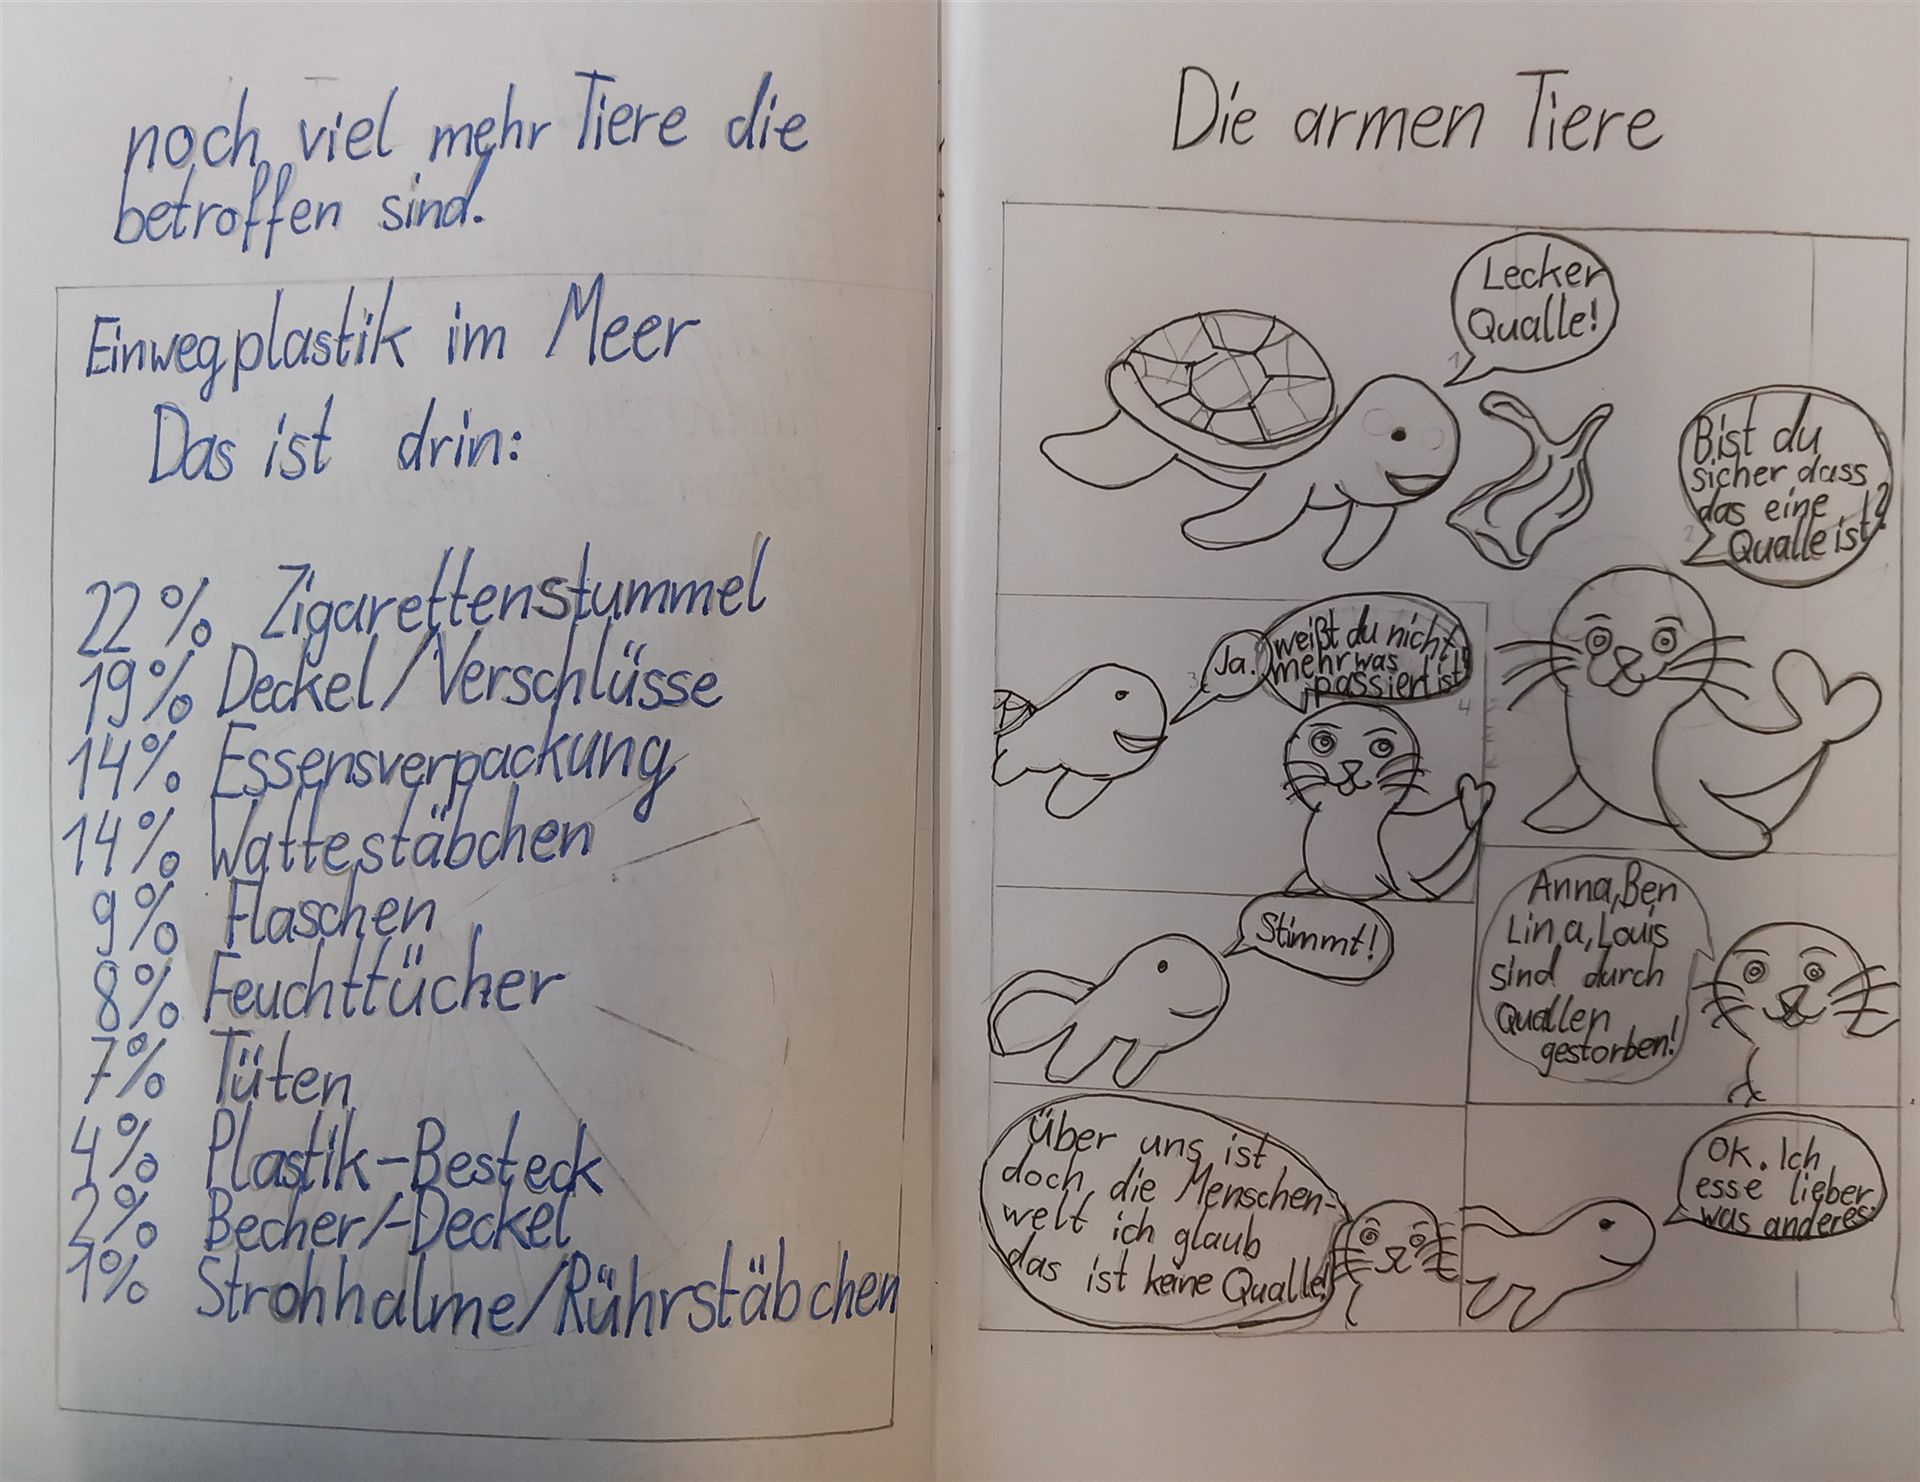 noch viel mehr Tiere die
betroffen sind.
Einwegplastik im Meer
Das ist drin:
22% Zigarettenstummel
19% Deckel/Verschlüsse
14% Essensverpackung
14% Wattestäbchen
9% Flaschen
8% Feuchttücher
7% Tüten
4% Plastik-Besteck
2% Becher/-Deckel
1% Strohhalme/Rührstäbchen
Die armen Tiere
Lecker
Qualle!
1
Bist du
sicher dass
das eine
Qualle ist?
2
Ja.
3
weißt du nicht
mehr was
passiert ist!
4
Stimmt!
Anna, Ben
Lina, Louis
sind durch
Quallen
gestorben!
Über uns ist
doch die Menschen-
welt ich glaub
das ist keine Qualle!
Ok. Ich
esse lieber
was anderes.